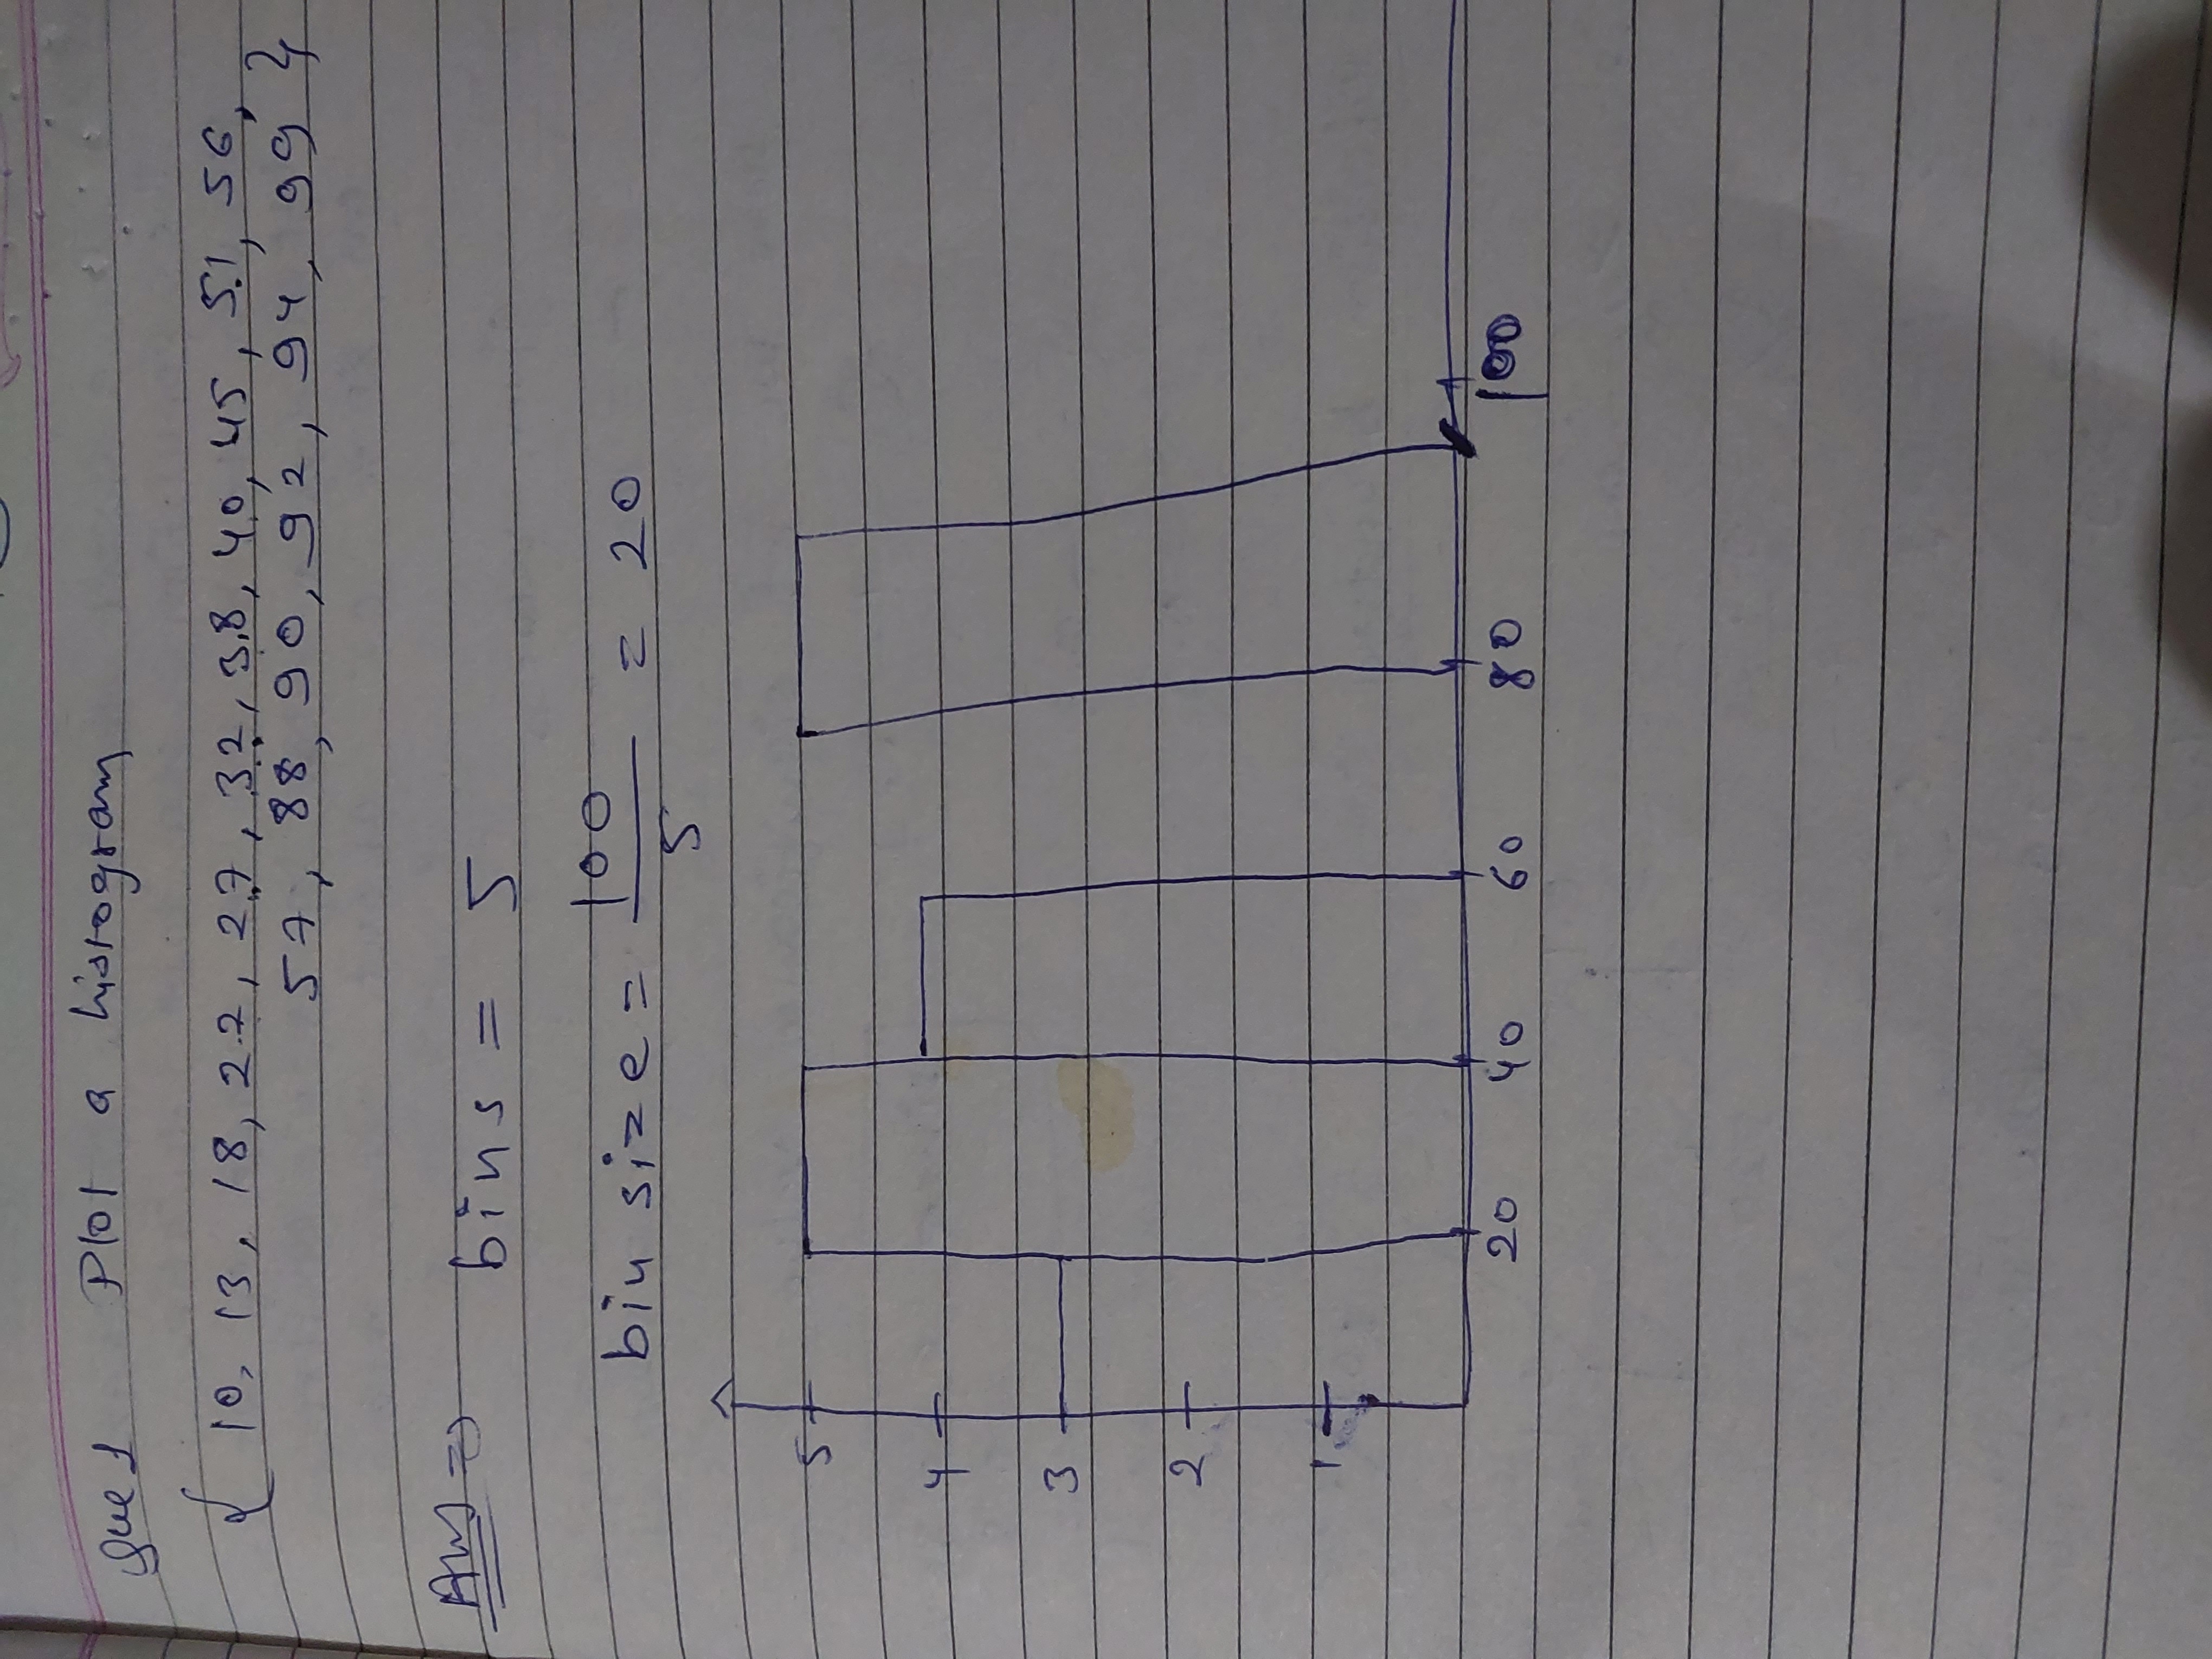 Que 1 Plot a histogram
{ 10, 13, 18, 22, 27, 32, 38, 40, 45, 51, 56,
57, 88, 90, 92, 94, 99 }
Ans ⇒ bins = 5
bin size = 100/5 = 20
5
4
3
2
1
20 40 60 80 100